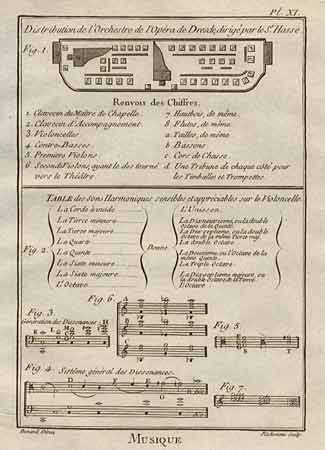 Pl. XI.
Distribution de l'Orchestre de l'Opéra de Dresde, dirigé par le Sr. Hasse
Fig. 1.
Renvois des Chiffres.
1. Clavecin du Maître de Chapelle.
2. Clavecin d'Accompagnement
3. Violoncelles
4. Contre-Basses
5. Premiers Violons
6. Seconds Violons, ayant le dos tourné
vers le Théâtre
7. Hautbois, de même.
8. Flutes, de même
a. Tailles, de même
b. Bassons
c. Cors de Chasse
d. Une Tribune de chaque côté pour
les Timballes et Trompettes
TABLE des Sons Harmoniques sensibles et appréciables sur le Violoncelle
Fig. 2.
La Corde à vuide
La Tierce mineure
La Tierce majeure
La Quarte
La Quinte
La Sixte mineure
La Sixte majeure
L'Octave
Donne
L'Unisson
La double Octave
La Triple Octave
L'Octave
Fig. 3.
Génération des Dissonances
Fig. 6.
Fig. 5
Fig. 4. Sistème général des Dissonances
Fig. 7
Benard Direx
MUSIQUE